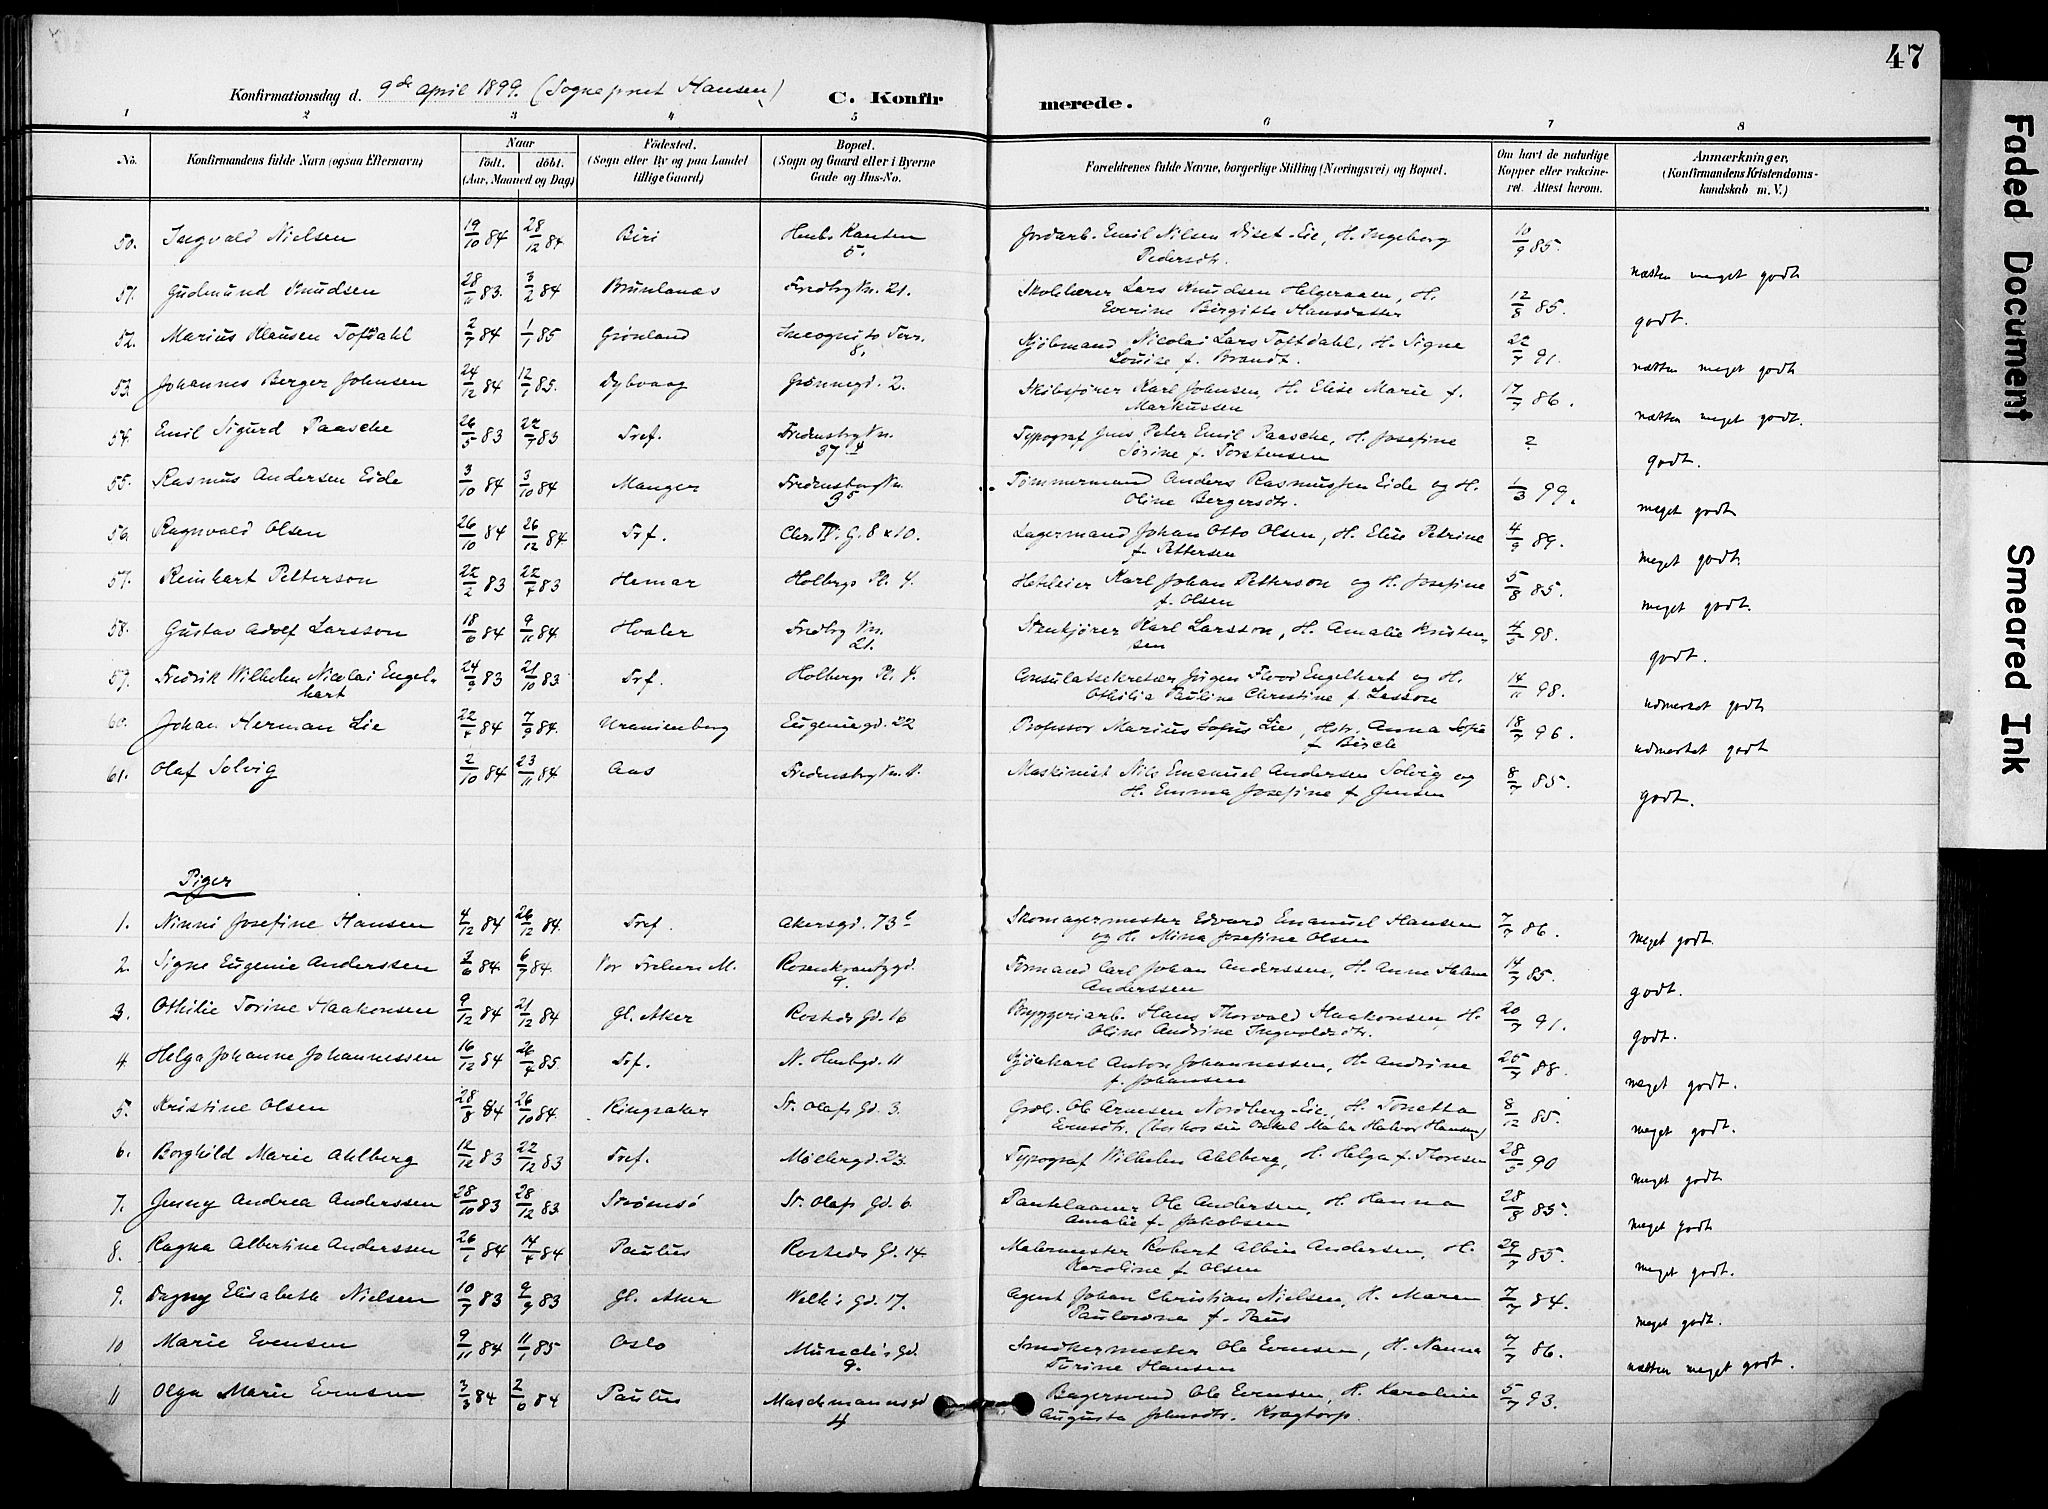 47
Konfirmationsdag d. 9de april 1899. (Sogneprest Hansen) C. Konfirmerede.
1 2 3 4 5 6 7 8
No. Konfirmandens fulde Navn (ogsaa Efternavn) Naar födt. döbt. (Aar, Maaned og Dag) Födested. (Sogn eller By og paa Landet tillige Gaard) Bopæl. (Sogn og Gaard eller i Byerne Gade og Hus-No. Forældrenes fulde Navne, borgerlige Stilling (Næringsvei) og Bopæl. Om havt de naturlige Kopper eller vakcineret. Attest herom. Anmærkninger, (Konfirmandens Kristendomskundskab m. V.)
50. Ingvald Nielsen 19/10 84 28/12 84 Biri 5. Jordarb. Emil Nilsen Diset-Eie, H. Ingeborg Pedersdtr. 10/9 85. næsten meget godt
51. Gudmund Knudsen 28/11 83. 3/2 84 Brunlanæs Fredbg Vn. 21. Skolelærer Lars Knudsen Helgeraaen, H. Everine Birgitte Hansdatter 12/8 85. godt.
52. Marius Klausen Toftdahl 2/7 84 1/1 85 Grønland Incognito Terr. 8. Kjøbmand Nicolai Lars Toftdahl, H. Signe Louise f. Brandt. 22/7 91. næsten meget godt
53. Johannes Berger Johnsen 24/12 84 12/1 85. Dybvaag Grønnegd. 2. Skibsfører Karl Johnsen, H. Elise Marie f. Markussen 17/7 86. næsten meget godt.
54. Emil Sigurd Paasche 26/5 83 22/7 83 Tref. Fredensbg Vn. 37 Typograf Jens Peter Emil Paasche, H. Josefine Sørine f. Torstensen ? godt.
55. Rasmus Andersen Eide 3/10 84 3/10 84 Manger Fredensborg Vn. 35 Tømmermand Anders Rasmussen Eide og H. Oline Bergersdtr. 1/3 99. meget godt
56. Ragnvald Olsen 26/10 84 26/12 84 Trf. Chr. IV. G. 8 x 10. Lagermand Johan Otto Olsen, H. Elise Petrine f. Pettersen 4/9 89. meget godt
57. Reinhart Petterson 22/2 83 22/4 83 Hamar Holbergs Pl. 4. Karl Johan Petterson og H. Josefine f. Olsen 5/8 85. meget godt.
58. Gustav Adolf Larsson 18/6 84 9/11 84 Hvaler Fredbg Vn. 21. Stenkjører Karl Larsson, H. Amalie Knutensen 4/5 98. godt.
59. Fredrik Wilhelm Nicolai Engelhart 24/9 83 21/10 83 Trf. Holbergs Pl. 4. Consulatsekretær Jørgen Flood Engelhart og H. Othilia Pauline Christine f. Lasson 14/11 98. udmerket godt
60. Johan Herman Lie 22/4 84 7/9 84. Uranienborg Eugeniegd. 22 Professor Marius Sofus Lie, Hstr. Anna Sofie f. Birch 18/7 96. udmerket godt
61. Olaf Solvig 2/10 84 23/11 84 Aas Fredensbg Vn. 4. Maskinist Nils Emanuel Andersen Solvig og H. Emma Josefine f. Jensen 8/7 85. godt.
Piger
1. Ninni Josefine Hansen 4/12 84 26/12 84. Tref. Akersgd. 73c Skomagermester Edvard Emanuel Hansen og H. Mina Josefine Olsen 7/7 86. Meget godt.
2. Signe Eugenie Anderssen 2/6 84. 6/7 84. Vor Frelsers M. Rosenkrantzgd. 9. Formand Carl Johan Anderssen, H. Anne Helene Anderssen 14/7 85. godt.
3. Othilie Torine Haakonsen 9/12 84 21/12 84 Gl. Aker Rosteds Gd. 16 Bryggeriarb. Hans Thorvald Haakonsen, H. Oline Andrine Ingvoldsdtr. 20/7 91. godt.
4. Helga Johanne Johannessen 16/12 84 26/4 85. Trf. N. Hmbgd. 11 Anton Johannessen, H. Andrine f. Johansen 25/7 88. meget godt.
5. Kristine Olsen 28/8 84 26/10 84. Ringsaker St. Olafs Gd. 3. Ole Arnesen Nordberg-Eie, H. Tonetta Evensdtr. (bor hos sin Onkel Maler Halvor Hansen) 8/12 85. meget godt.
6. Borghild Marie Ahlberg 12/12 83 22/12 83 Tref. Møllergd. 23. Typograf Wilhelm Ahlberg, H. Helga f. Thoresen 28/5 90 meget godt
7. Jenny Andrea Anderssen 28/10 83 28/12 83 Strømsö St. Olafs Gd. 6. Pantelaaner Ole Andersen, H. Hanna Amalie f. Jakobsen 28/8 85. meget godt
8. Ragna Albertine Anderssen 26/1 84 14/4 84 Paulus Rosteds Gd. 14 Malermester Robert Albin Andersen, H. Karoline f. Olsen 29/7 85. meget godt.
9. Dagny Elisabeth Nielsen 10/7 83 9/9 83 Gl. Aker Welh's Gd. 17. Agent Johan Christian Nielsen, H. Maren Paulowne f. Paus 7/7 84. meget godt.
10 Marie Evensen 9/11 84 11/1 85 Oslo Munch's Gd. 9. Smøkermester Ole Evensen, H. Nanna Turine Hansen 7/7 86. næsten meget godt.
11 Olga Marie Evensen 3/3 84 2/6 84 Paulus Maschmannsgd 4 Bagersvend Ole Evensen, H. Karoline Augusta Johnsdtr. Kragtorp. 5/7 93.
Faded Document
Smeared Ink